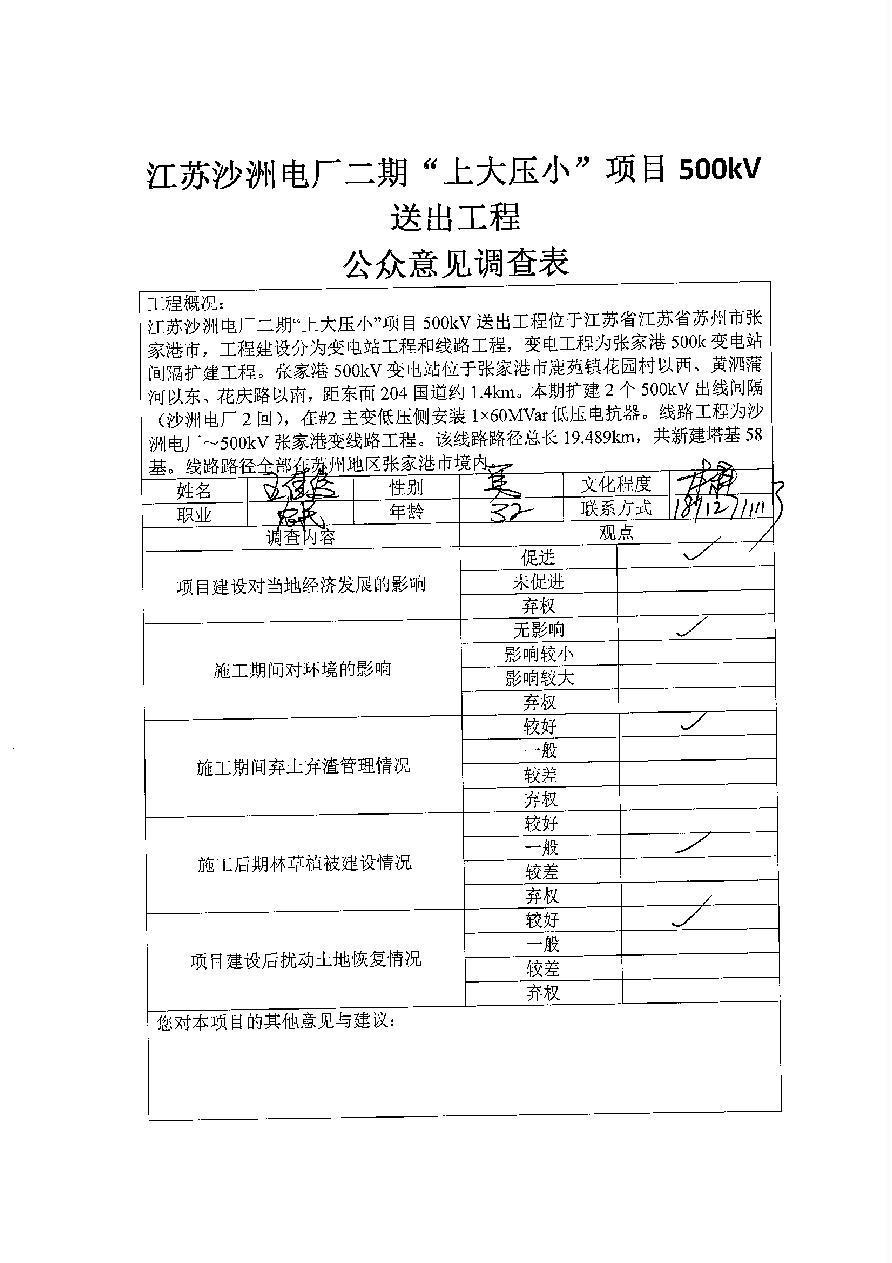 江苏沙洲电厂二期“上大压小”项目 500kV
送出工程
公众意见调查表
工程概况：
江苏沙洲电厂二期“上大压小”项目 500kV 送出工程位于江苏省江苏省苏州市张
家港市，工程建设分为变电站工程和线路工程，变电工程为张家港 500k 变电站
间隔扩建工程。张家港 500kV 变电站位于张家港市鹿苑镇花园村以西、黄泗蒲
河以东、花庆路以南，距东面 204 国道约 1.4km。本期扩建 2 个 500kV 出线间隔
（沙洲电厂 2 回），在#2 主变低压侧安装 1×60MVar 低压电抗器。线路工程为沙
洲电厂～500kV 张家港变线路工程。该线路路径总长 19.489km，共新建塔基 58
基。线路路径全部在苏州地区张家港市境内。
姓名 性别 文化程度
职业 农民 年龄 32 联系方式
调查内容 观点
促进 ✓
项目建设对当地经济发展的影响 未促进
弃权
无影响 ✓
影响较小
施工期间对环境的影响
影响较大
弃权
较好 ✓
一般
施工期间弃土弃渣管理情况
较差
弃权
较好
一般 ✓
施工后期林草植被建设情况
较差
弃权
较好 ✓
一般
项目建设后扰动土地恢复情况
较差
弃权
您对本项目的其他意见与建议：